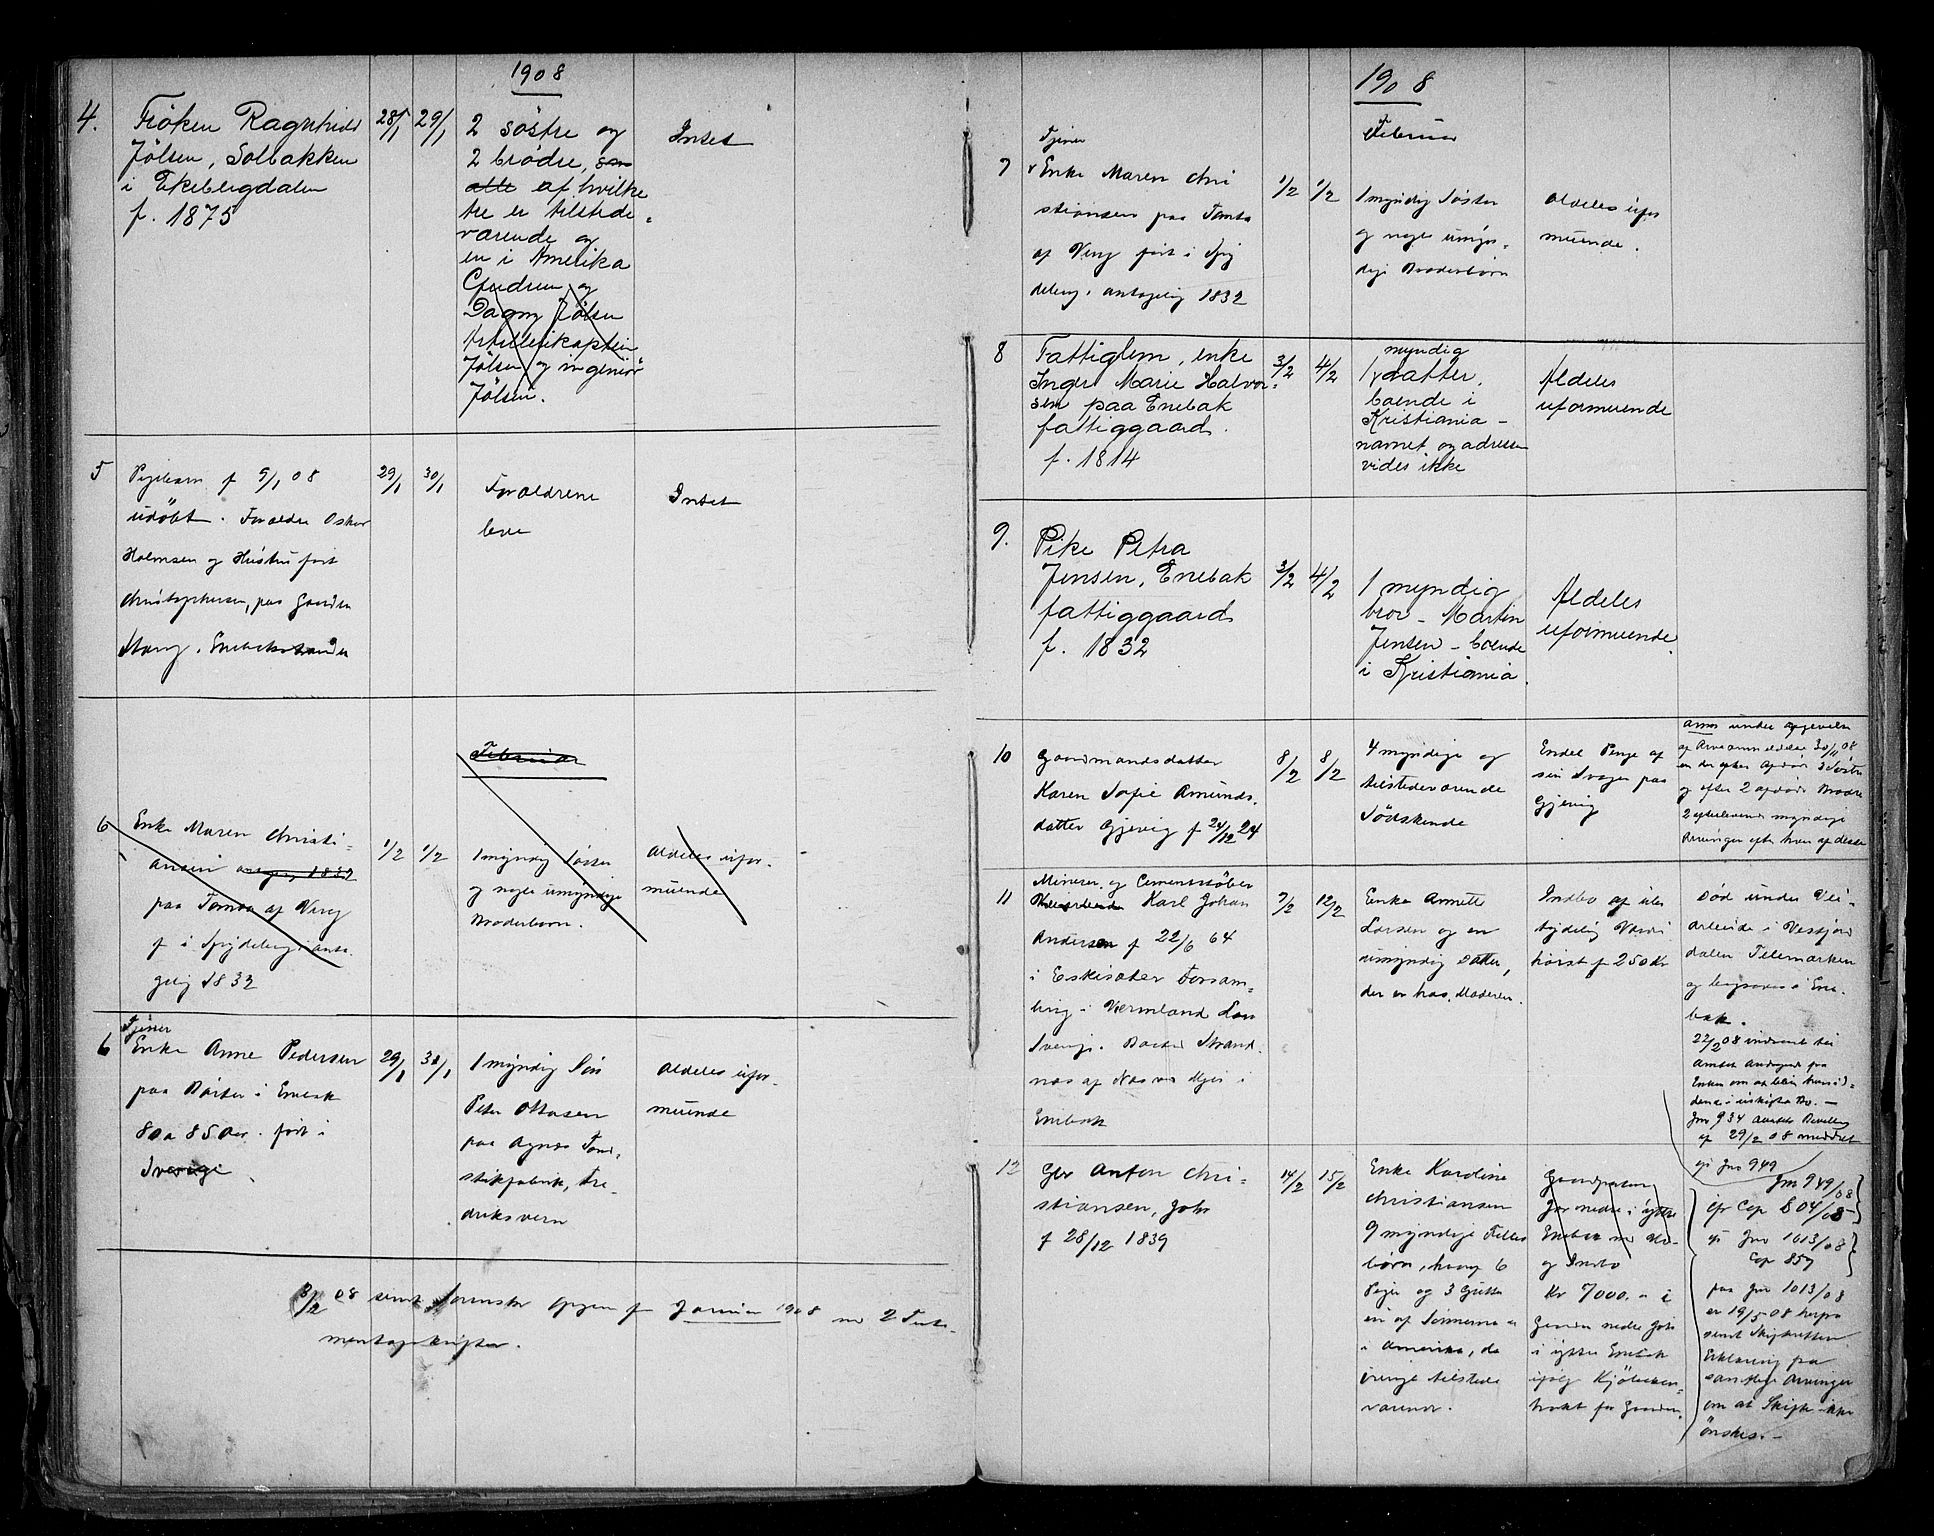 1908
4.
Frøken Ragnhild
Jølsen, Solbakken
i Ekebergdalen
f. 1875
28/1
29/1
2 søstre og
2 brødre, som
alle af hvilke
tre er tilstede-
værende og
en i Amerika
Gudrun og
Dagny Jølsen
Artillerikaptein
Jølsen og ingeniør
Jølsen.
Intet
5
Pigebarn f 9/1 08
udøbt. Forældre Oskar
Holmsen og Hustru født
Christophersen, paa Gaarden
29/1
30/1
Forældrene
leve
Intet
Februar
6
Enke Maren Christi-
ansen antagelig 1832
paa Tomta af Veng
f i Spydeberg anta-
gelig 1832
1/2
1/2
1 myndig Søster
og nogle umyndige
Broderbørn.
Aldeles ufor-
muende
6
Tjener
Enke Anne Pedersen
paa Børter i Enebak
80 a 85 Aar. født i
Sverige
29/1
31/1
1 myndig Søn
Peter Ottosen
paa Agnes Tænd-
stikfabrik, Fre-
driksvern
Aldeles ufor-
muende
3/2 08 sendt Sorenskr Opgave for Januar 1908 m 2 Testa-
mentafskrifter.
1908
Februar
7
Tjener
Enke Maren Chri
stiansen paa Tomta
af Veng født i Spy
deberg, antagelig 1832
1/2
1/2
1 myndig Søster
og nogle umyn-
dige Broderbørn
Aldeles ufor
muende.
8
Fattiglem, enke
Inger Marie Halvor-
sen paa Enebak
fattiggaard.
f. 1814
3/2
4/2
myndig
1 datter,
boende i
Kristiania -
navnet og adressen
vides ikke
Aldeles
uformuende
9.
Pike Petra
Jensen, Enebak
fattiggaard
f. 1832
3/2
4/2
1 myndig
bror - Martin
Jensen - boende
i Kristiania.
Aldeles
uformuende.
10
Gaardmandsdatter
Karen Sofie Amunds-
datter Gjevig f 24/12 24
8/2
8/2
4 myndige og
tilstedeværende
Sødskende
Endel Penge af
sin Svoger paa
Gjevig
Anm under Opgivelse
af Arveanmeldelse 30/11 08
er der efter Afdøde 3 Søstre
og efter 2 afdøde Brødre
2 efterlevende myndige
Arvinger efter hver af disse
11
Minerer og Cementstøber
Karl Johan
Andersen f 22/6 64
i Eskilsæter Forsam-
ling i Vermland Len
Sverige. Bosted Strand-
næs af Næs ved Mjær i
Enebak
9/2
12/2
Enke Annette
Larsen og en
umyndig Datter,
der er hos Moderen.
Indbo af ube
tydelig Værdi
høist f 250 Kr
Død under Vei-
arbeide i Vestfjord
dalen Telemarken
og begraves i Ene-
bak.
22/2 08 indsendt til
Amtet Andragende fra
Enken om at blive hensid-
dende i uskiftet Bo. -
Jno 934 Amtets Bevilling
af 29/2 08 meddelt
cfr Jno 949
12
Gbr Anton Chri-
stiansen, Johs
f 28/12 1839
14/2
15/2
Enke Karoline
Christiansen
9 myndige Fælles
børn, hvoraf 6
Piger og 3 Gutter
en af Sønnerne er
i Amerika, de
øvrige tilstede
værende.
Gaardparten
Jor nedre i ytre
Enebak m
og Indbo
Kr 7000.- i
Gaarden nedre Johs
i ytre Enebak
ifølg Kjøbekon-
trakt for Gaarden.
Jno 949/08
cfr Cop 804/08
cfr Jno 1013/08
Cop 859
paa Jno 1013/08
er 19/5 08 herfra
sendt Skifteretten
Erklæring fra
samtlige Arvinger
om at Skifte ikke
ønskes. -